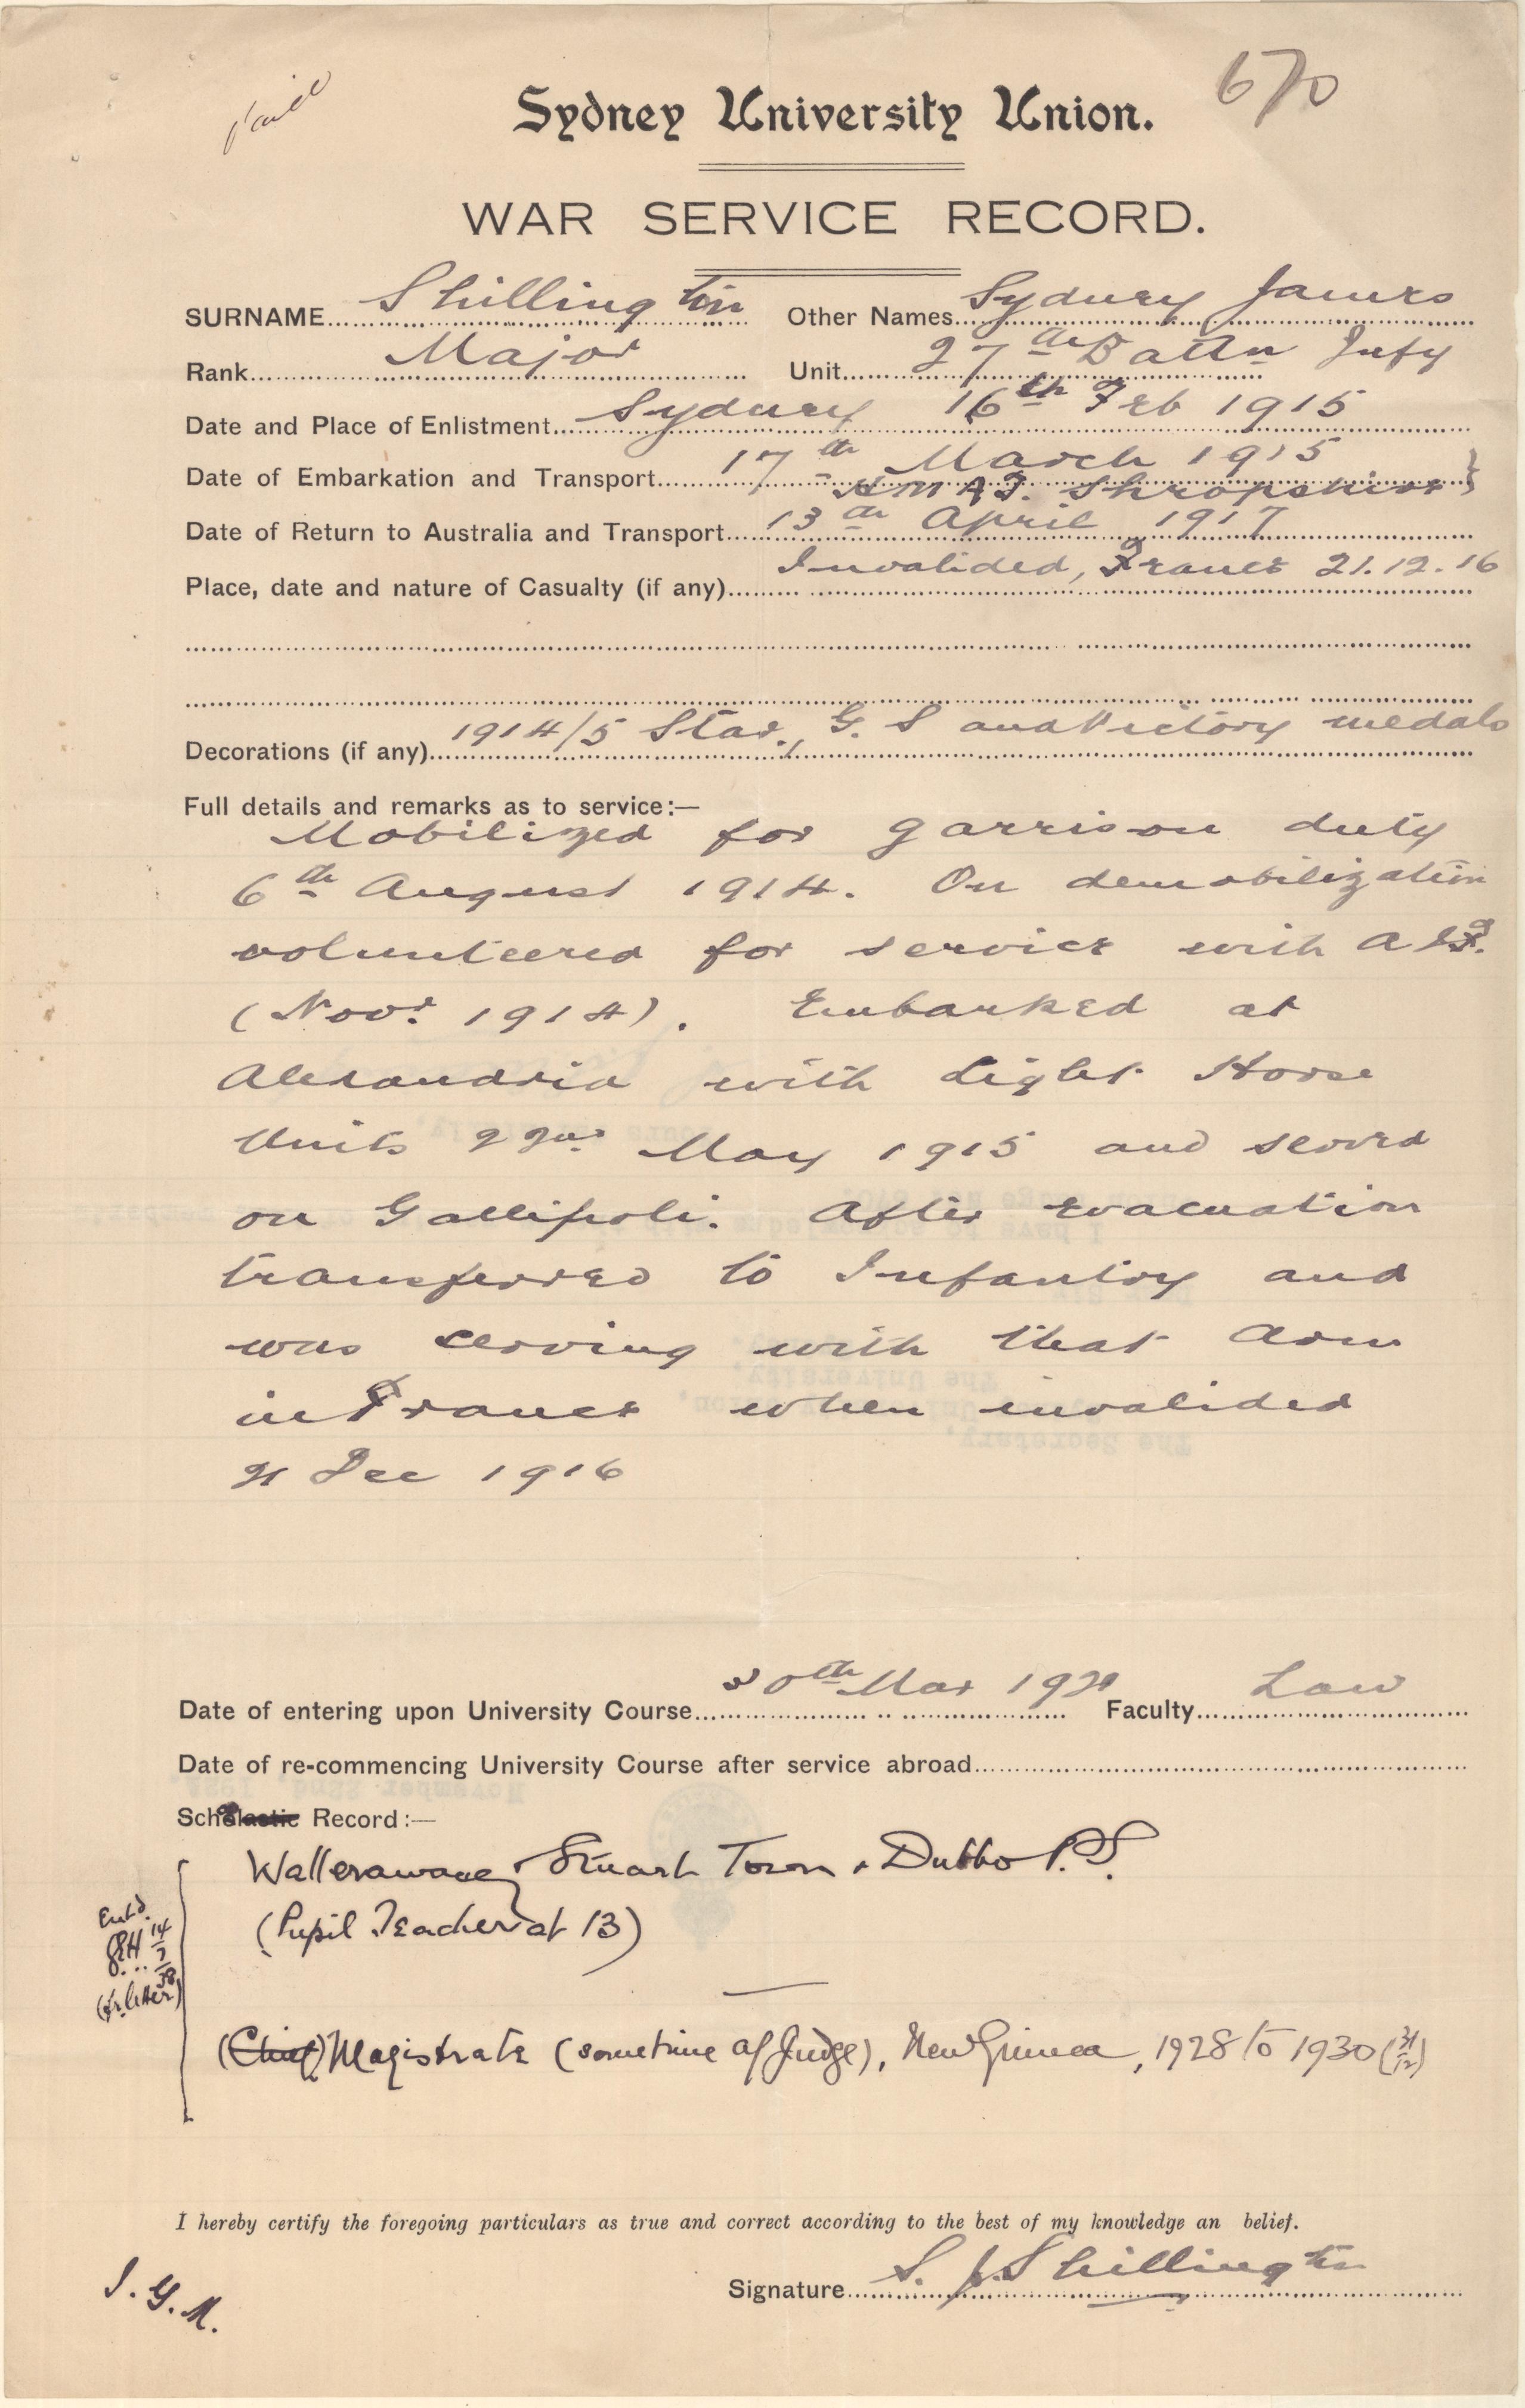 paid
670
Sydney University Union.
WAR SERVICE RECORD.
SURNAME Shillington Other Names Sydney James
Rank Major Unit 27th Battn Infy
Date and Place of Enlistment Sydney 16th Feb 1915
Date of Embarkation and Transport 17th March 1915
HMAT. Shropshire }
Date of Return to Australia and Transport 13th April 1917
Place, date and nature of Casualty (if any) Invalided, France 21.12.16
Decorations (if any) 1914/5 Star, G. S and Victory medals
Full details and remarks as to service:—
Mobilized for garrison duty
6th August 1914. On demobilization
volunteered for service with A I F.
(Novr. 1914). Embarked at
Alexandria with Light Horse
Units 22nd May 1915 and served
on Gallipoli. After evacuation
transferred to Infantry and
was serving with that Arm
in France when invalided
21 Dec 1916
Date of entering upon University Course 30th Mar 1920 Faculty Law
Date of re-commencing University Course after service abroad
Record:—
Wallerawang, Stuart Town & Dubbo P.S.
(Pupil Teacher at 13)
Entd.
14
7
38
(fr letter)
(Chief) Magistrate (sometime a/Judge), New Guinea, 1928 to 1930 (31/12)
I hereby certify the foregoing particulars as true and correct according to the best of my knowledge an belief.
Signature S. J. Shillington